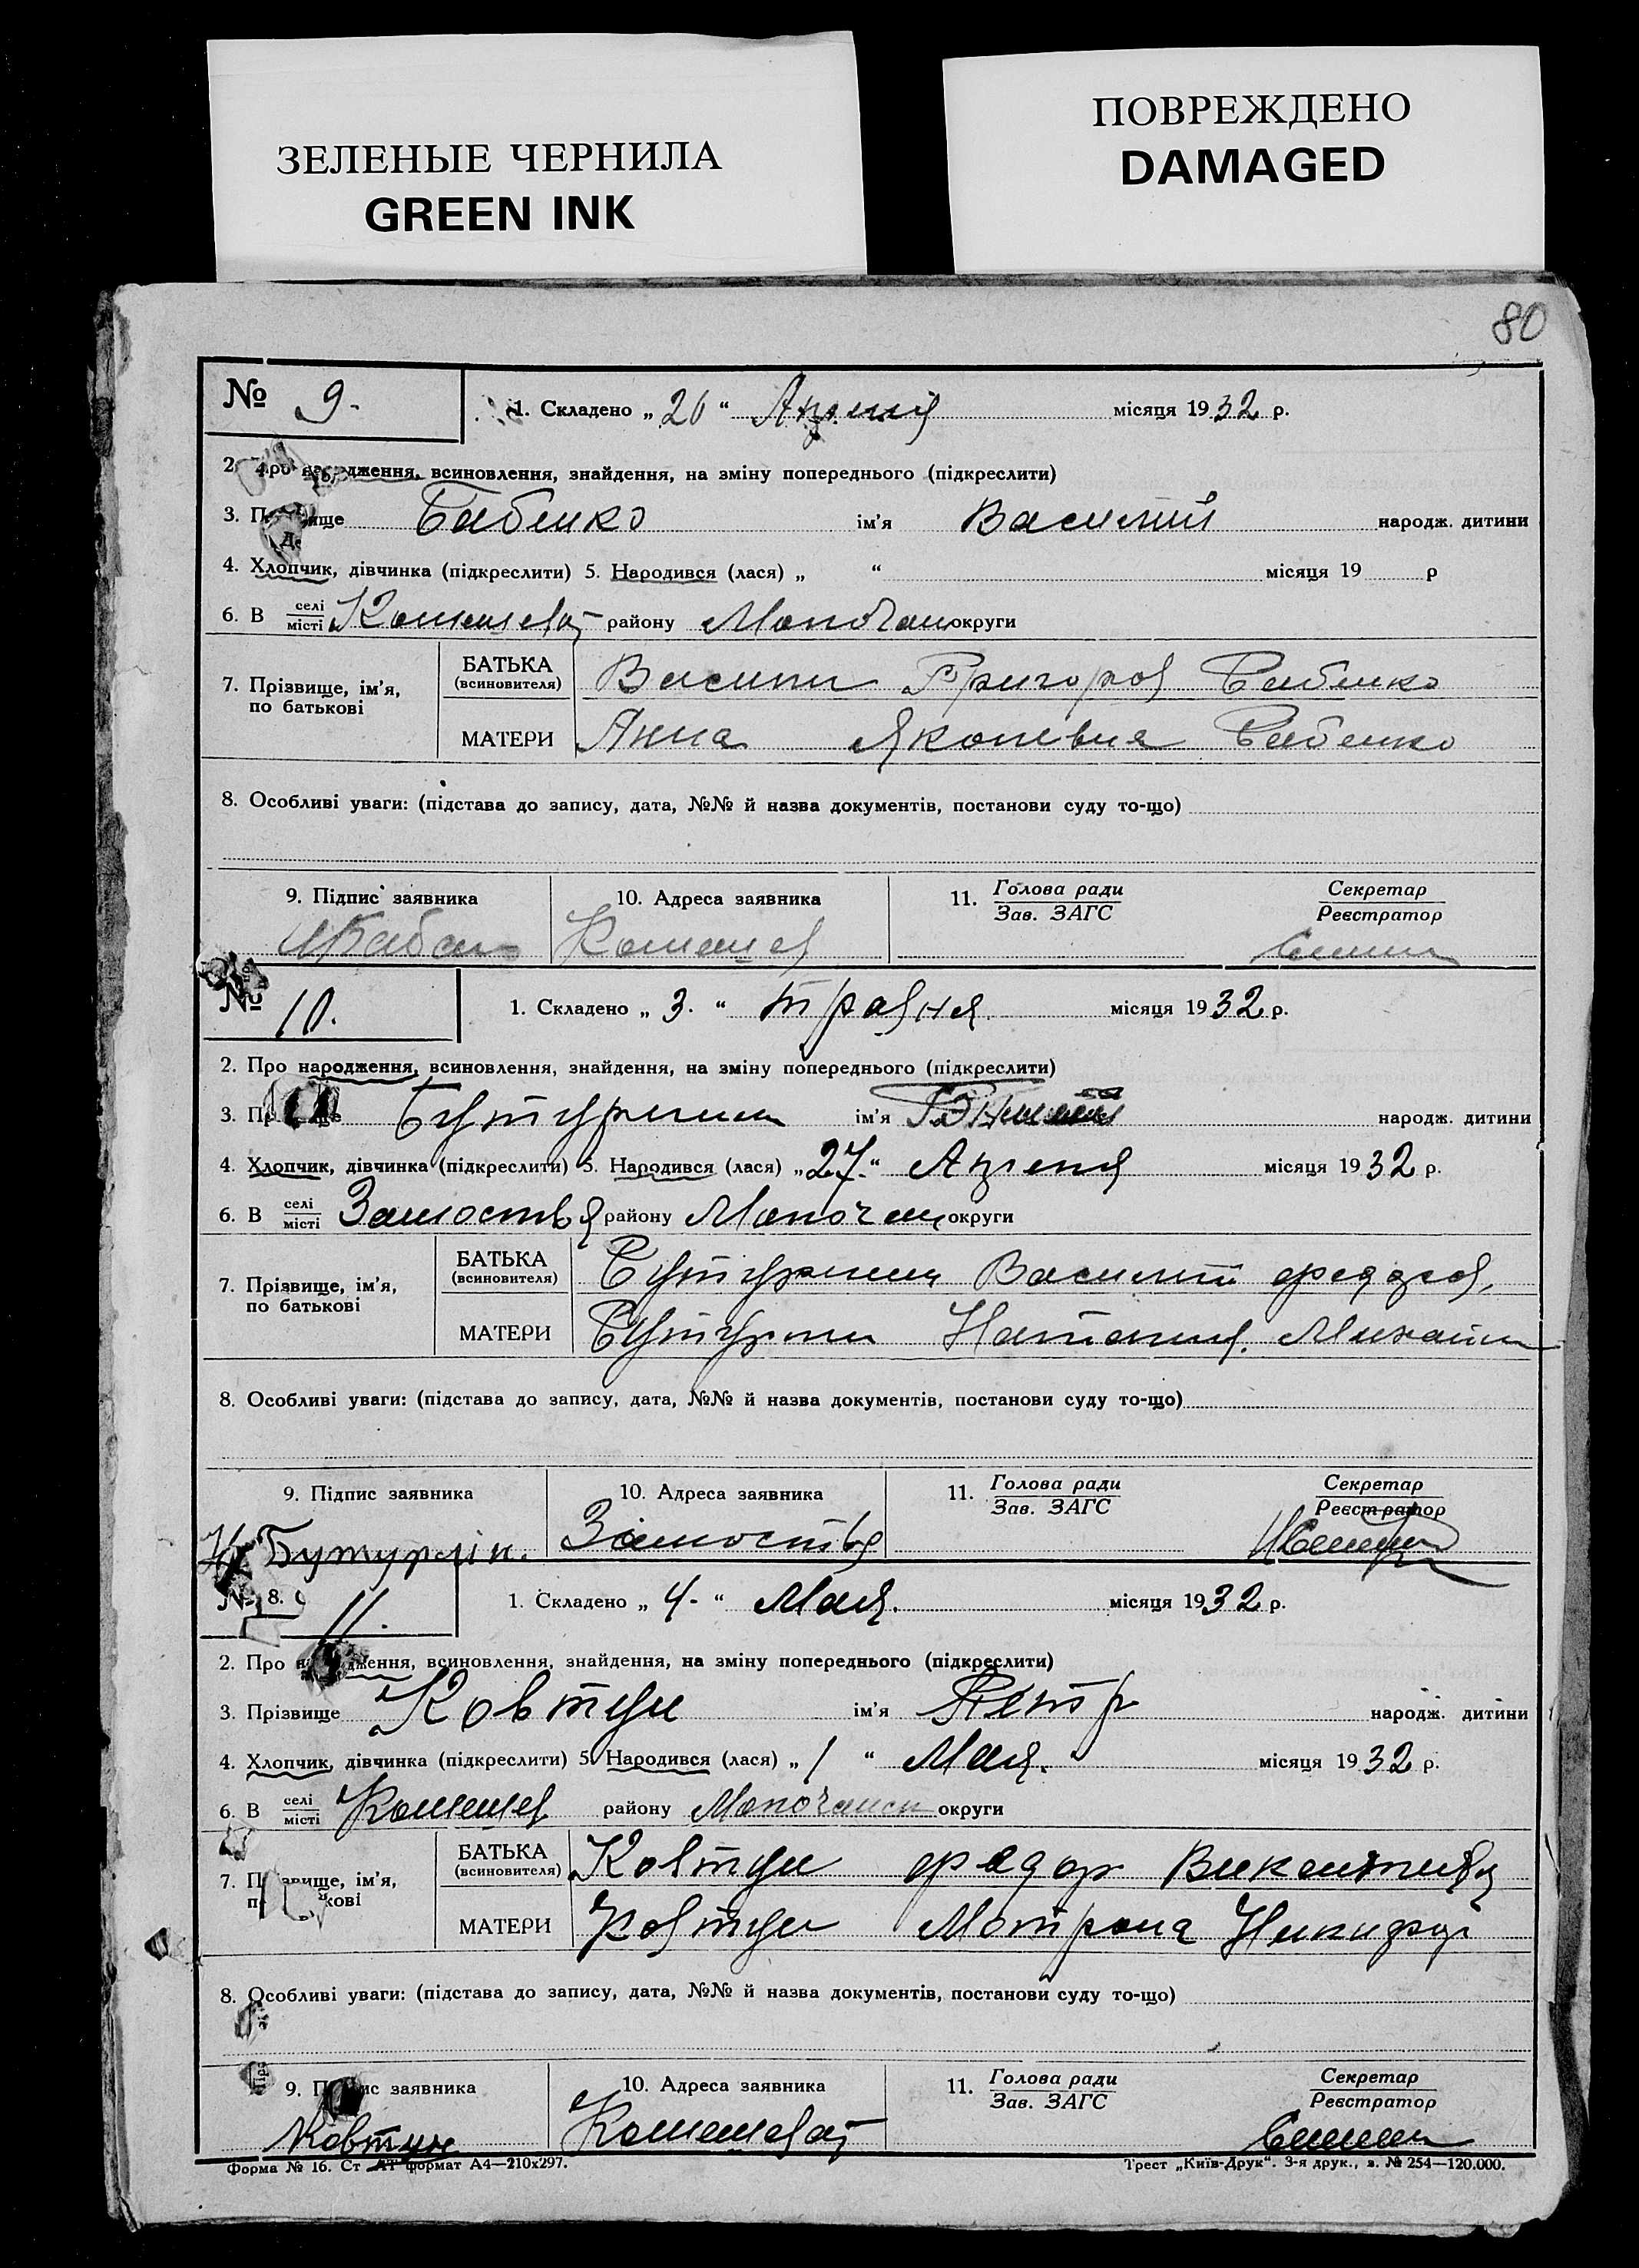 ЗЕЛЕНЫЕ ЧЕРНИЛА
GREEN INK
ПОВРЕЖДЕНО
DAMAGED
80
№ 9. 1. Складено „ 20 “ Апреля місяця 1932 р.
2. Про народження, всиновлення, знайдення, на зміну попереднього (підкреслити)
3. Прізвище Бабенко ім'я Василий народж. дитини
4. Хлопчик, дівчинка (підкреслити) 5. Народився (лася) „ “ місяця 19 р
6. В селі/місті району округи
7. Прізвище, ім'я, по батькові
БАТЬКА (всиновителя) Григоров Бабенко
МАТЕРИ Анна Бабенко
8. Особливі уваги: (підстава до запису, дата, №№ й назва документів, постанови суду то-що)
9. Підпис заявника 10. Адреса заявника 11. Голова ради/Зав. ЗАГС Секретар/Реєстратор
№ 10. 1. Складено „ 3. “ травня місяця 1932 р.
2. Про народження, всиновлення, знайдення, на зміну попереднього (підкреслити)
3. Бутурлин ім'я народж. дитини
4. Хлопчик, дівчинка (підкреслити) 5. Народився (лася) „ 27. “ Апреля місяця 1932 р.
6. В селі/місті Замостья району округи
7. Прізвище, ім'я, по батькові
БАТЬКА (всиновителя) Бутурлин Василий
МАТЕРИ Бутурлин
8. Особливі уваги: (підстава до запису, дата, №№ й назва документів, постанови суду то-що)
9. Підпис заявника 10. Адреса заявника 11. Голова ради/Зав. ЗАГС Секретар/Реєстратор
Бутурлін. Замостья
№ 8. 11. 1. Складено „ 4. “ Мая. місяця 1932 р.
2. Про народження, всиновлення, знайдення, на зміну попереднього (підкреслити)
3. Прізвище Ковтун ім'я Петр народж. дитини
4. Хлопчик, дівчинка (підкреслити) 5. Народився (лася) „ 1 “ Мая. місяця 1932 р.
6. В селі/місті району округи
7. Прізвище, ім'я, по батькові
БАТЬКА (всиновителя) Ковтун Федор
МАТЕРИ Ковтун Мотрона Никифор
8. Особливі уваги: (підстава до запису, дата, №№ й назва документів, постанови суду то-що)
9. Підпис заявника 10. Адреса заявника 11. Голова ради/Зав. ЗАГС Секретар/Реєстратор
Ковтун
Форма № 16. Ст АТ формат А4—210х297. Трест „Київ-Друк“. 3-я друк., з. № 254—120.000.